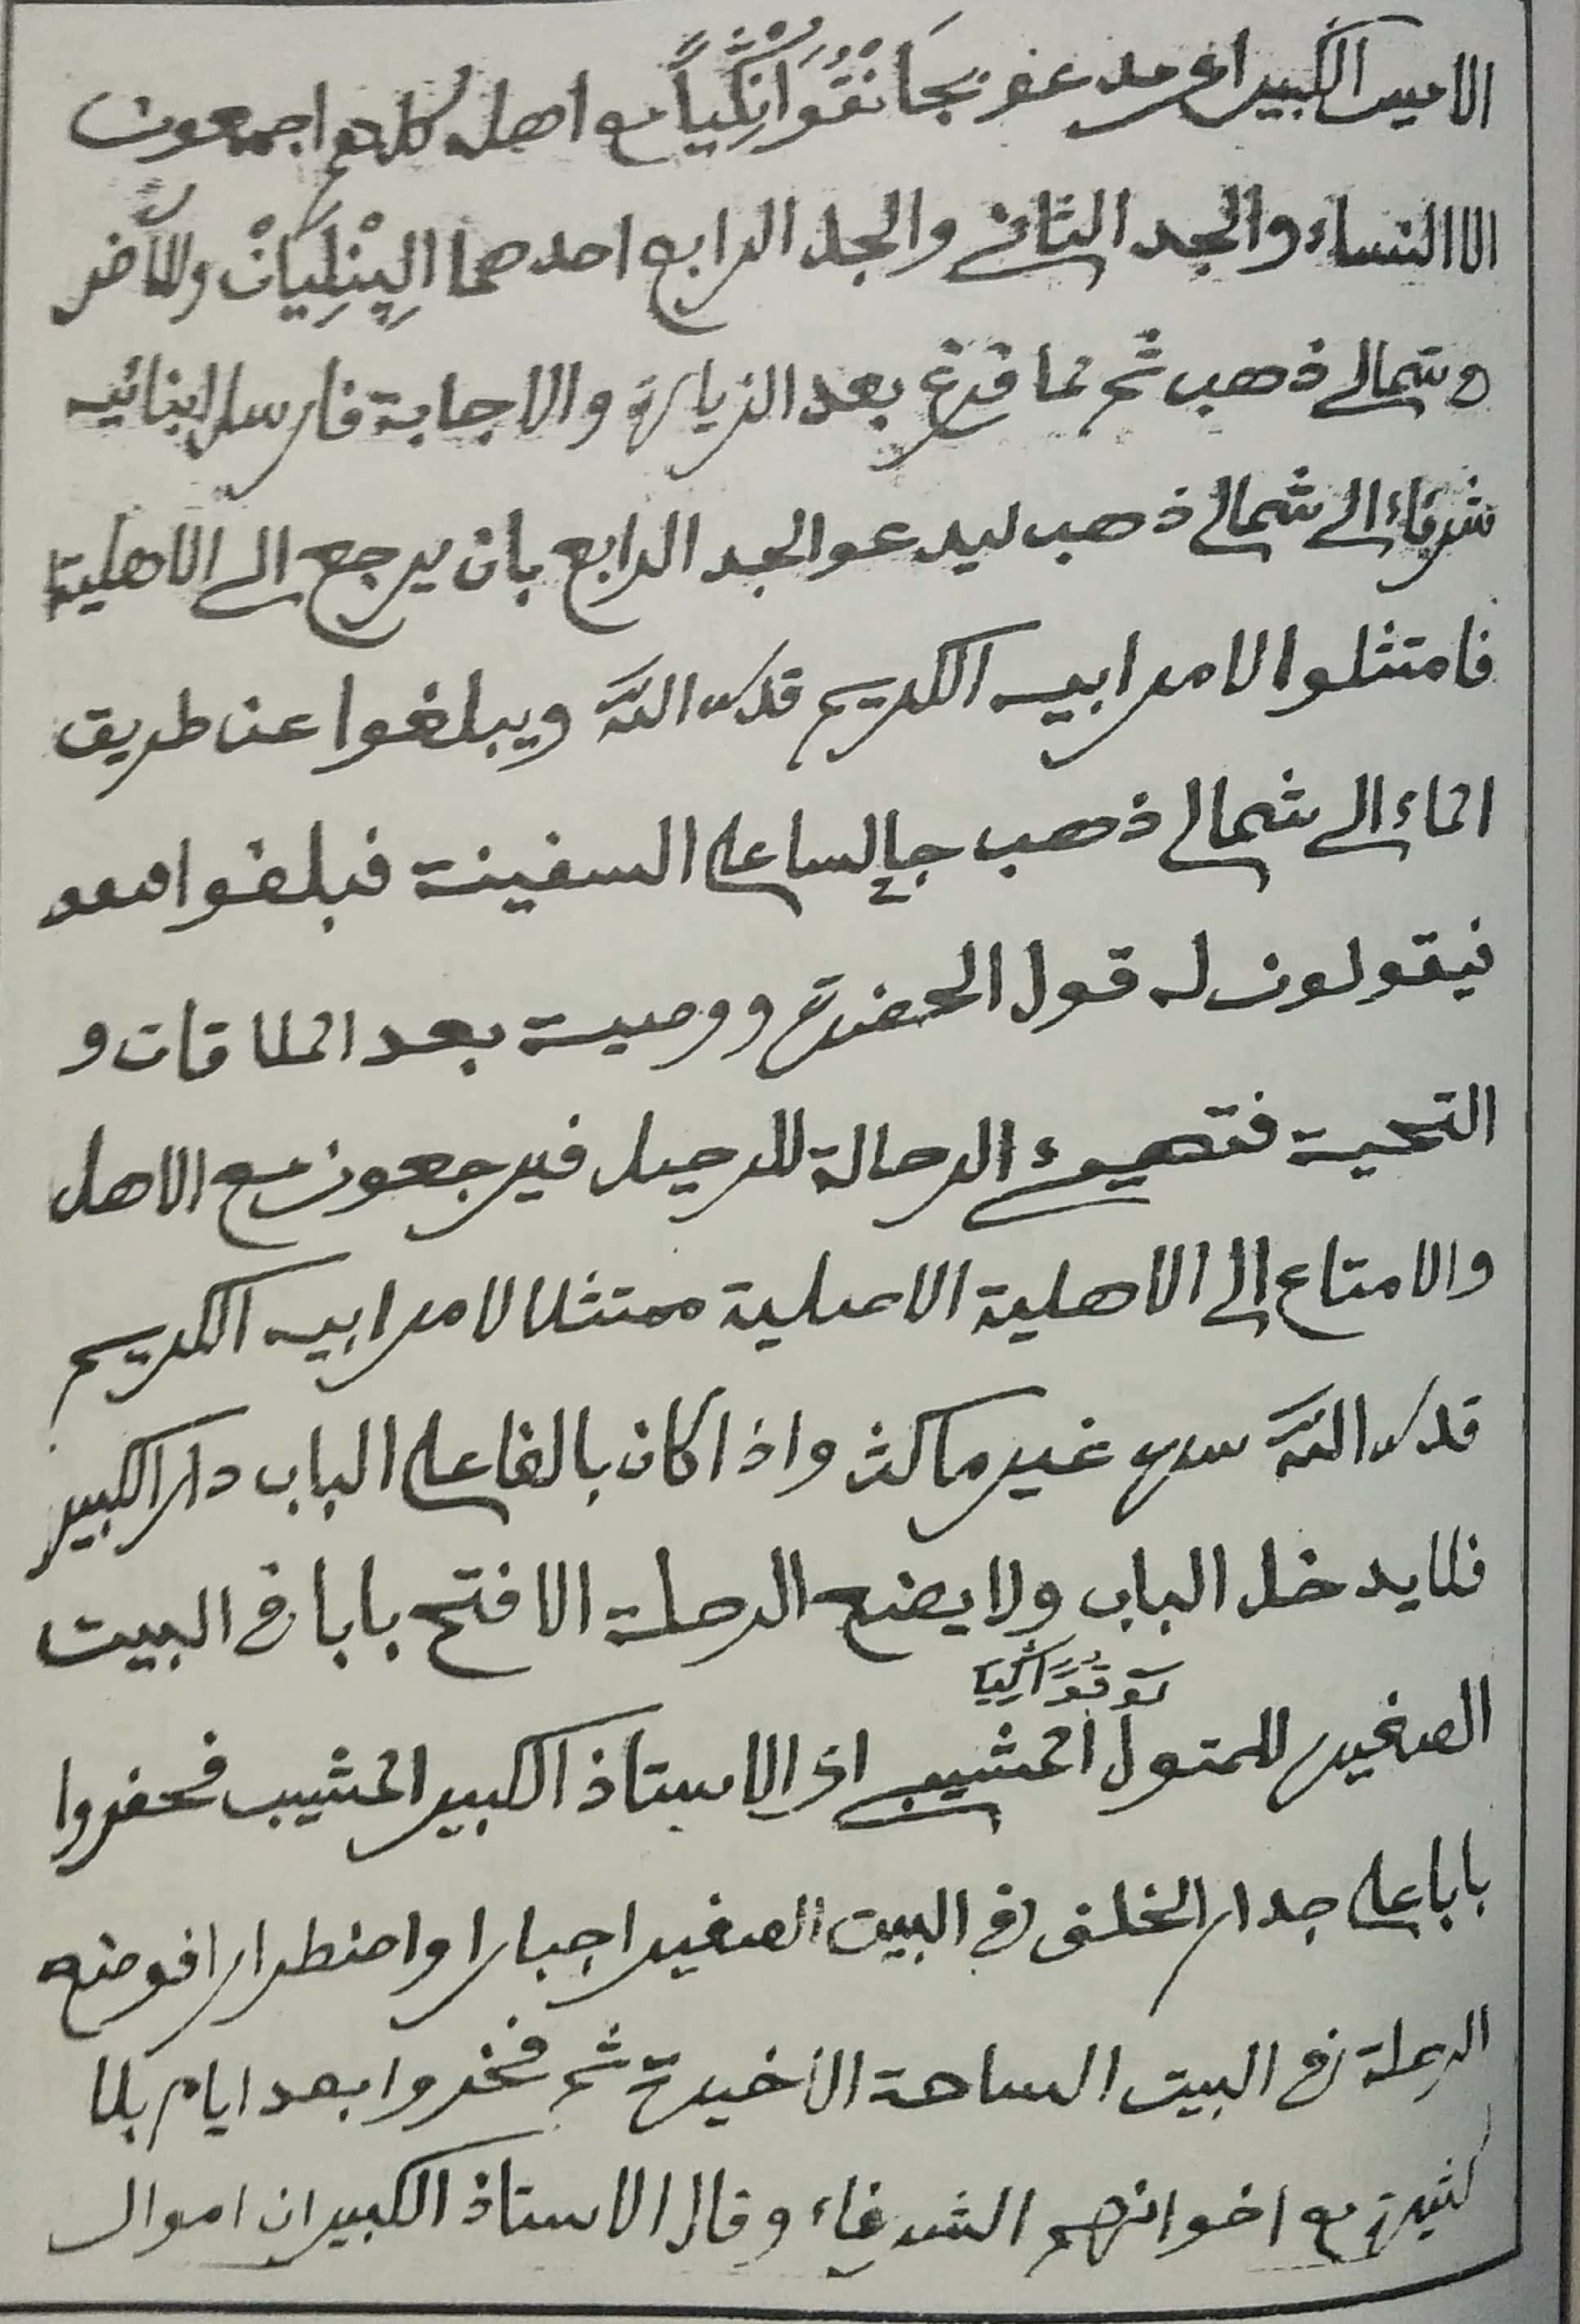 الامير الكبير احمد عفر بجَانْقُوَانِكِّيَاً مع اهله كلهم اجمعون
الا النساء والجد الثاني والجد الرابع احدهما الِيِنْلِيَانْ وللآخر
و شمالي ذهب ثم لما فرغ بعد الزيارة والاجابة فارسل ابنائيه
شرفاء الى شمالي ذهب ليدعو الجد الرابع بان يرجع الى الاهلية
فامتثلوا الامر ابيه الكريم قدس الله ويبلغوا عن طريق
الماء الى شمالي ذهب جالسا على السفينة فبلغوا
فيقولون له قول الحضرة ووصية بعد الملاقات و
التحية فتهيئ الرحالة للرحيل فيرجعون مع الاهل
والامتاع الى الاهلية الاصلية ممتثلا لامر ابيه الكريم
قدس الله سره غير ماكث واذا كان بالغا على الباب دار الكبير
فلا يدخل الباب ولا يضع الرحلة الا فتح بابا في البيت
الصغير للمتول المشيب اذ الاستاذ الكبير المشيب فحفروا
بابا على جدار الخلف في البيت الصغير اجبارا واضطرارا فوضع
الرحلة في البيت الساحة الاخيرة ثم فخروا بعد ايام بلا
كثيرة مع اخوانهم الشرفاء وقال الاستاذ الكبير ان اموال